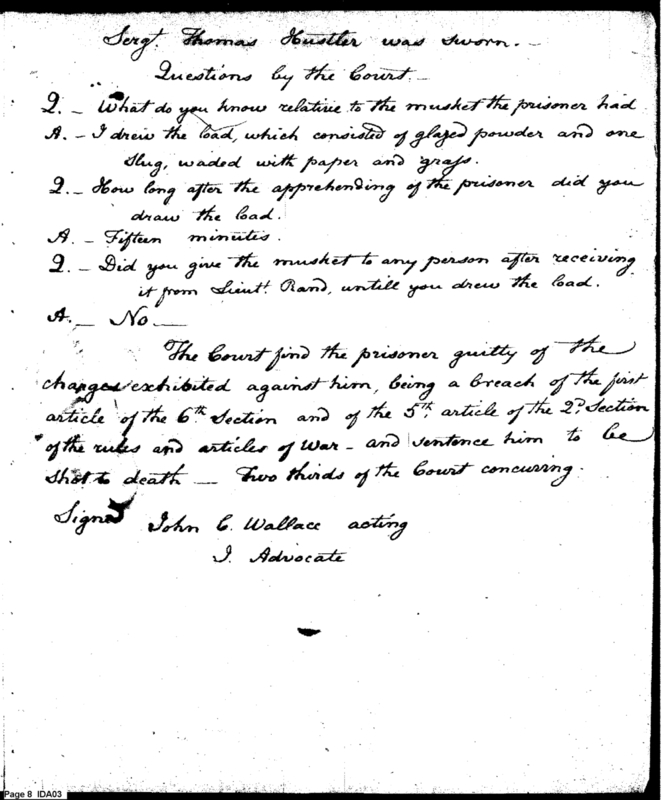 Sergt. Thomas Hustler was sworn. -
Questions by the Court. -
Q. - What do you know relative to the musket the prisoner had
A. - I drew the load, which consisted of glazed powder and one
slug, waded with paper and grass.
Q. - How long after the apprehending of the prisoner did you
draw the load.
A. - Fifteen minutes.
Q. - Did you give the musket to any person after receiving
it from Lieut. Rand, untill you drew the load.
A. - No -
The Court find the prisoner guilty of the
charges exhibited against him, being a breach of the first
article of the 6th Section and of the 5th article of the 2d Section
of the rules and articles of War - and sentence him to be
shot to death - Two thirds of the Court concurring.
Signed John C. Wallace acting
J. Advocate
Page 8 IDA03